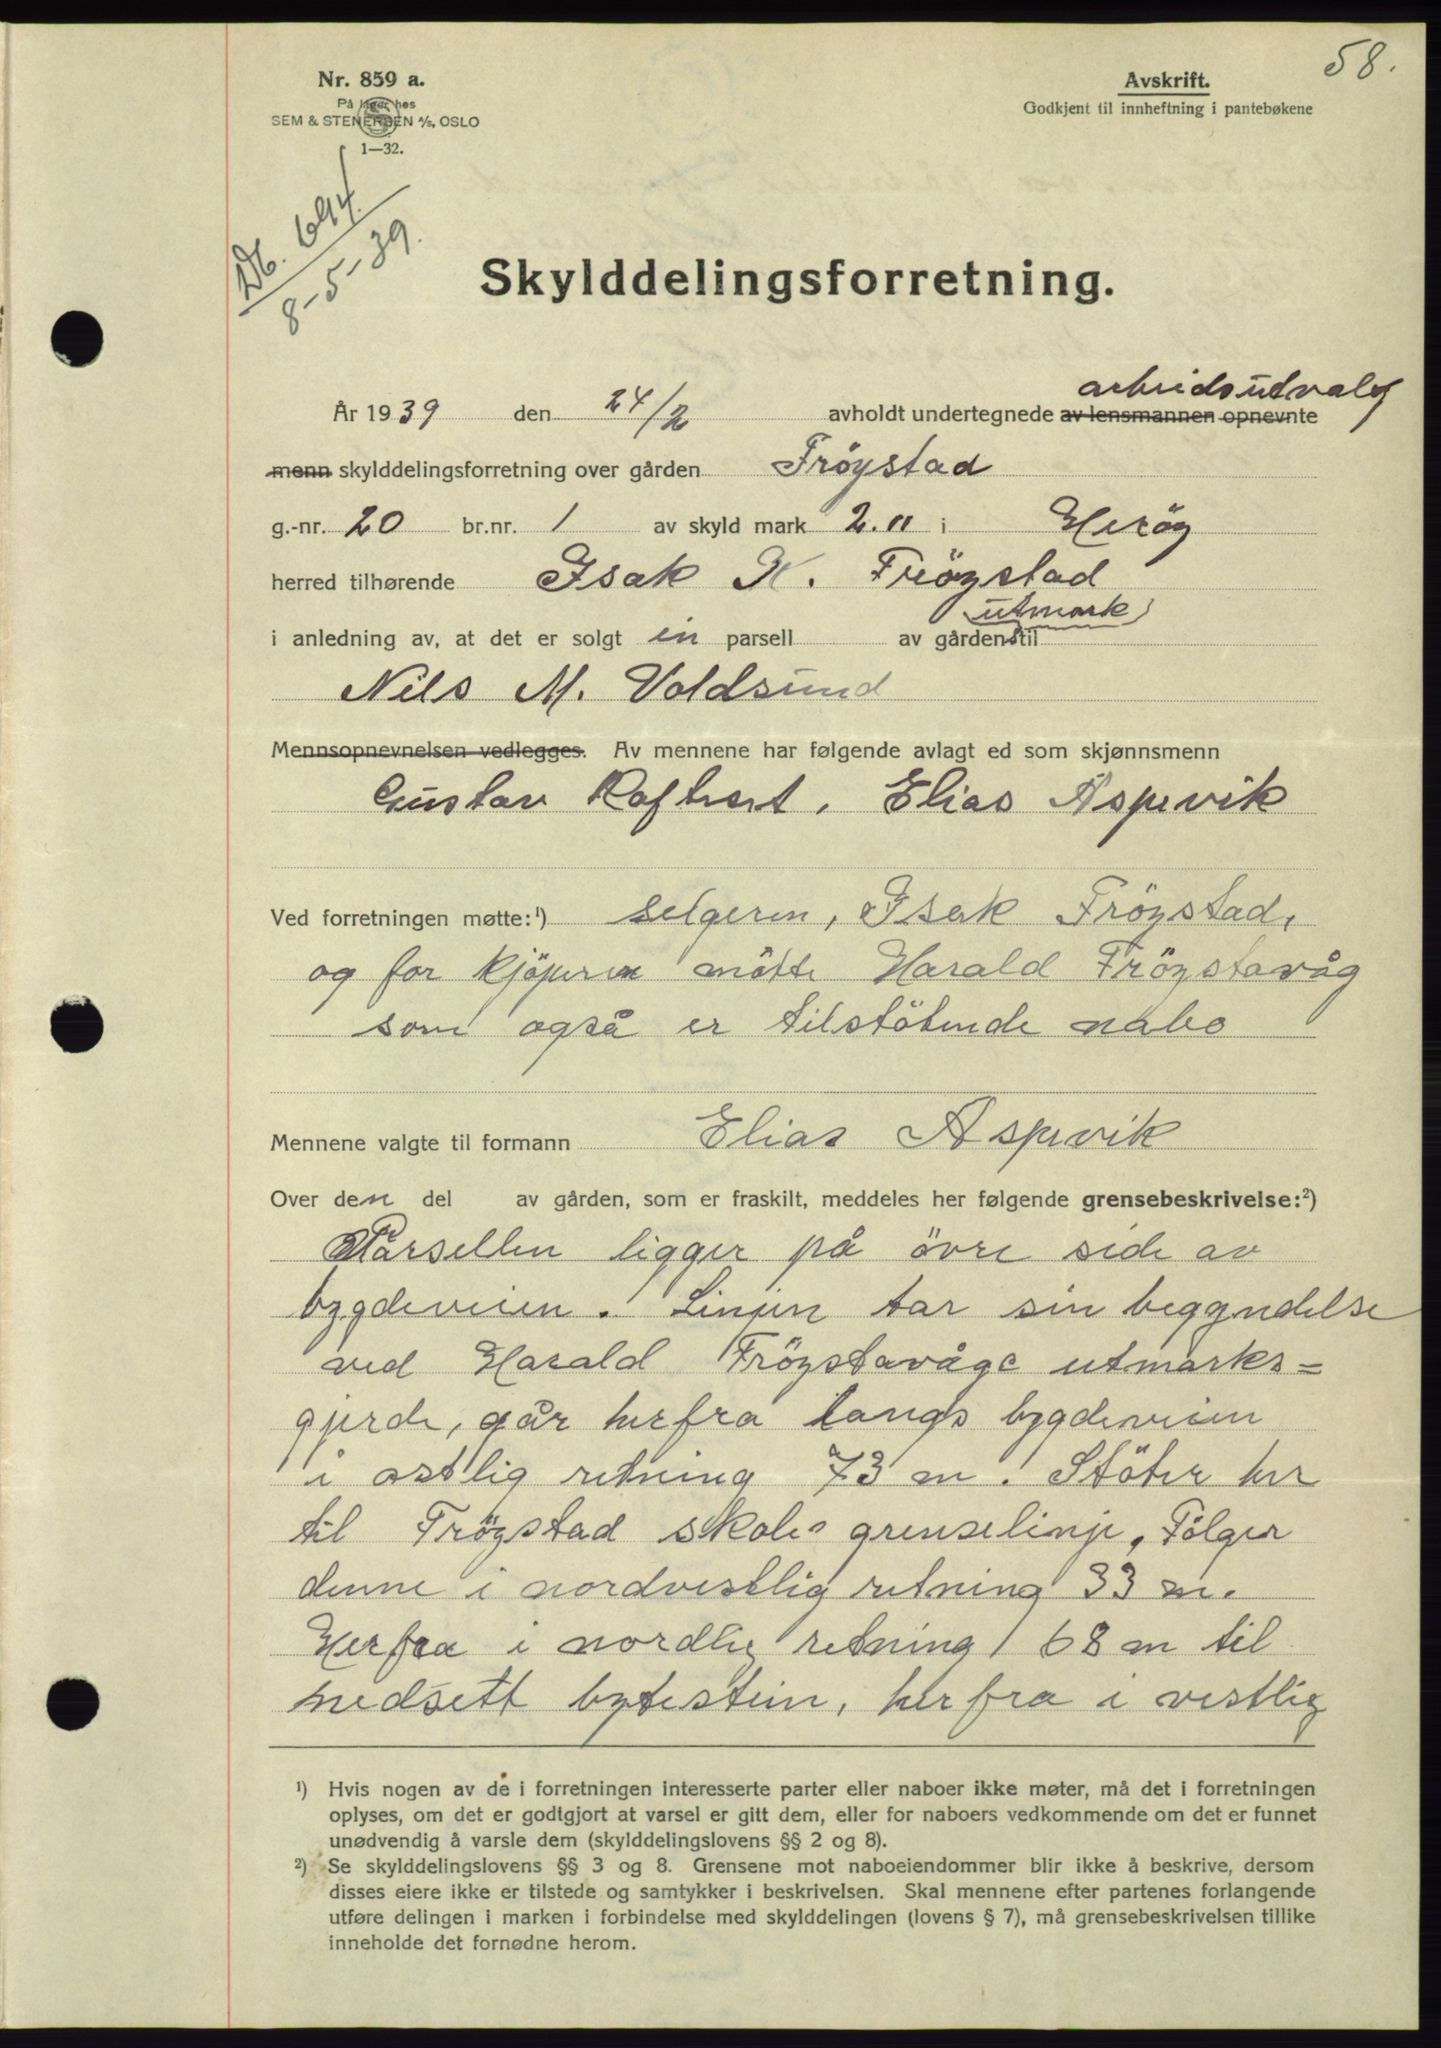 58.
Nr. 859 a.
På lager hos
SEM & STENERSEN A/S, OSLO
1—32.
Avskrift.
Godkjent til innheftning i pantebøkene
Db. 694/
8-5-39.
Skylddelingsforretning.
arbeidsutvalg
År 1939 den 24/2 avholdt undertegnede av lensmannen opnevnte
menn skylddelingsforretning over gården Fröystad
g.-nr. 20 br.nr. 1 av skyld mark 2.11 i Heröy
herred tilhørende Isak K. Fröystad
utmark
i anledning av, at det er solgt en parsell av gårdens til
Nils M. Voldsund
Mennsopnevnelsen vedlegges. Av mennene har følgende avlagt ed som skjønnsmenn
Gustav Raftevet, Elias Aspevik
Ved forretningen møtte:¹) selgeren, Isak Fröystad,
og for kjöperen mötte Harald Fröystavåg
som også er tilstötende nabo
Mennene valgte til formann Elias Aspevik
Over den del av gården, som er fraskilt, meddeles her følgende grensebeskrivelse:²)
Parsellen ligger på övre side av
bygdeveien. Linjen tar sin begyndelse
ved Harald Fröystavågs utmarks=
gjerde, går herfra langs bygdeveien
i østlig retning 73 m. Stöter her
til Fröystad skoles grenselinje, Fölger
denne i nordvestlig retning 33 m.
Herfra i nordlig retning 68 m til
nedsett bytestein, herfra i vestlig
¹) Hvis nogen av de i forretningen interesserte parter eller naboer ikke møter, må det i forretningen
oplyses, om det er godtgjort at varsel er gitt dem, eller for naboers vedkommende om det er funnet
unødvendig å varsle dem (skylddelingslovens §§ 2 og 8).
²) Se skylddelingslovens §§ 3 og 8. Grensene mot naboeiendommer blir ikke å beskrive, dersom
disses eiere ikke er tilstede og samtykker i beskrivelsen. Skal mennene efter partenes forlangende
utføre delingen i marken i forbindelse med skylddelingen (lovens § 7), må grensebeskrivelsen tillike
inneholde det fornødne herom.